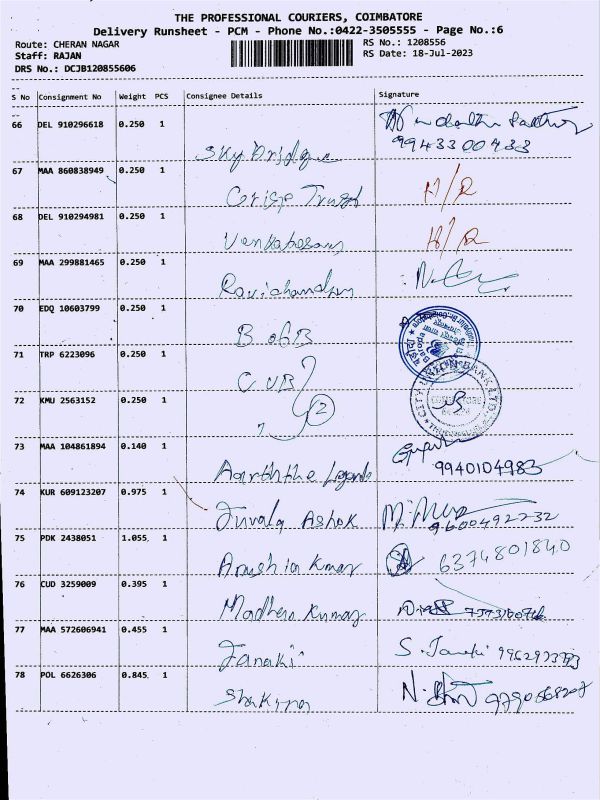 THE PROFESSIONAL COURIERS, COIMBATORE
Delivery Runsheet - PCM - Phone No.:0422-3505555 - Page No.:6
Route: CHERAN NAGAR
RS No.: 1208556
Staff: RAJAN
RS Date: 18-Jul-2023
DRS No.: DCJB120855606
S No Consignment No Weight PCS Consignee Details Signature
66 DEL 910296618 0.250 1
9943300433
67 MAA 860838949 0.250 1
Crisp Trust H/R
68 DEL 910294981 0.250 1
H/R
69 MAA 299881465 0.250 1
Ravichandran
70 EDQ 10603799 0.250 1
B of B
71 TRP 6223096 0.250 1
CUB
72 KMU 2563152 0.250 1
2
73 MAA 104861894 0.140 1
9940104983
74 KUR 609123207 0.975 1
Ashok 9600492232
75 PDK 2438051 1.055 1
Kumar 6374801840
76 CUD 3259009 0.395 1
Kumar
77 MAA 572606941 0.455 1
Janaki S. Janaki
78 POL 6626306 0.845 1